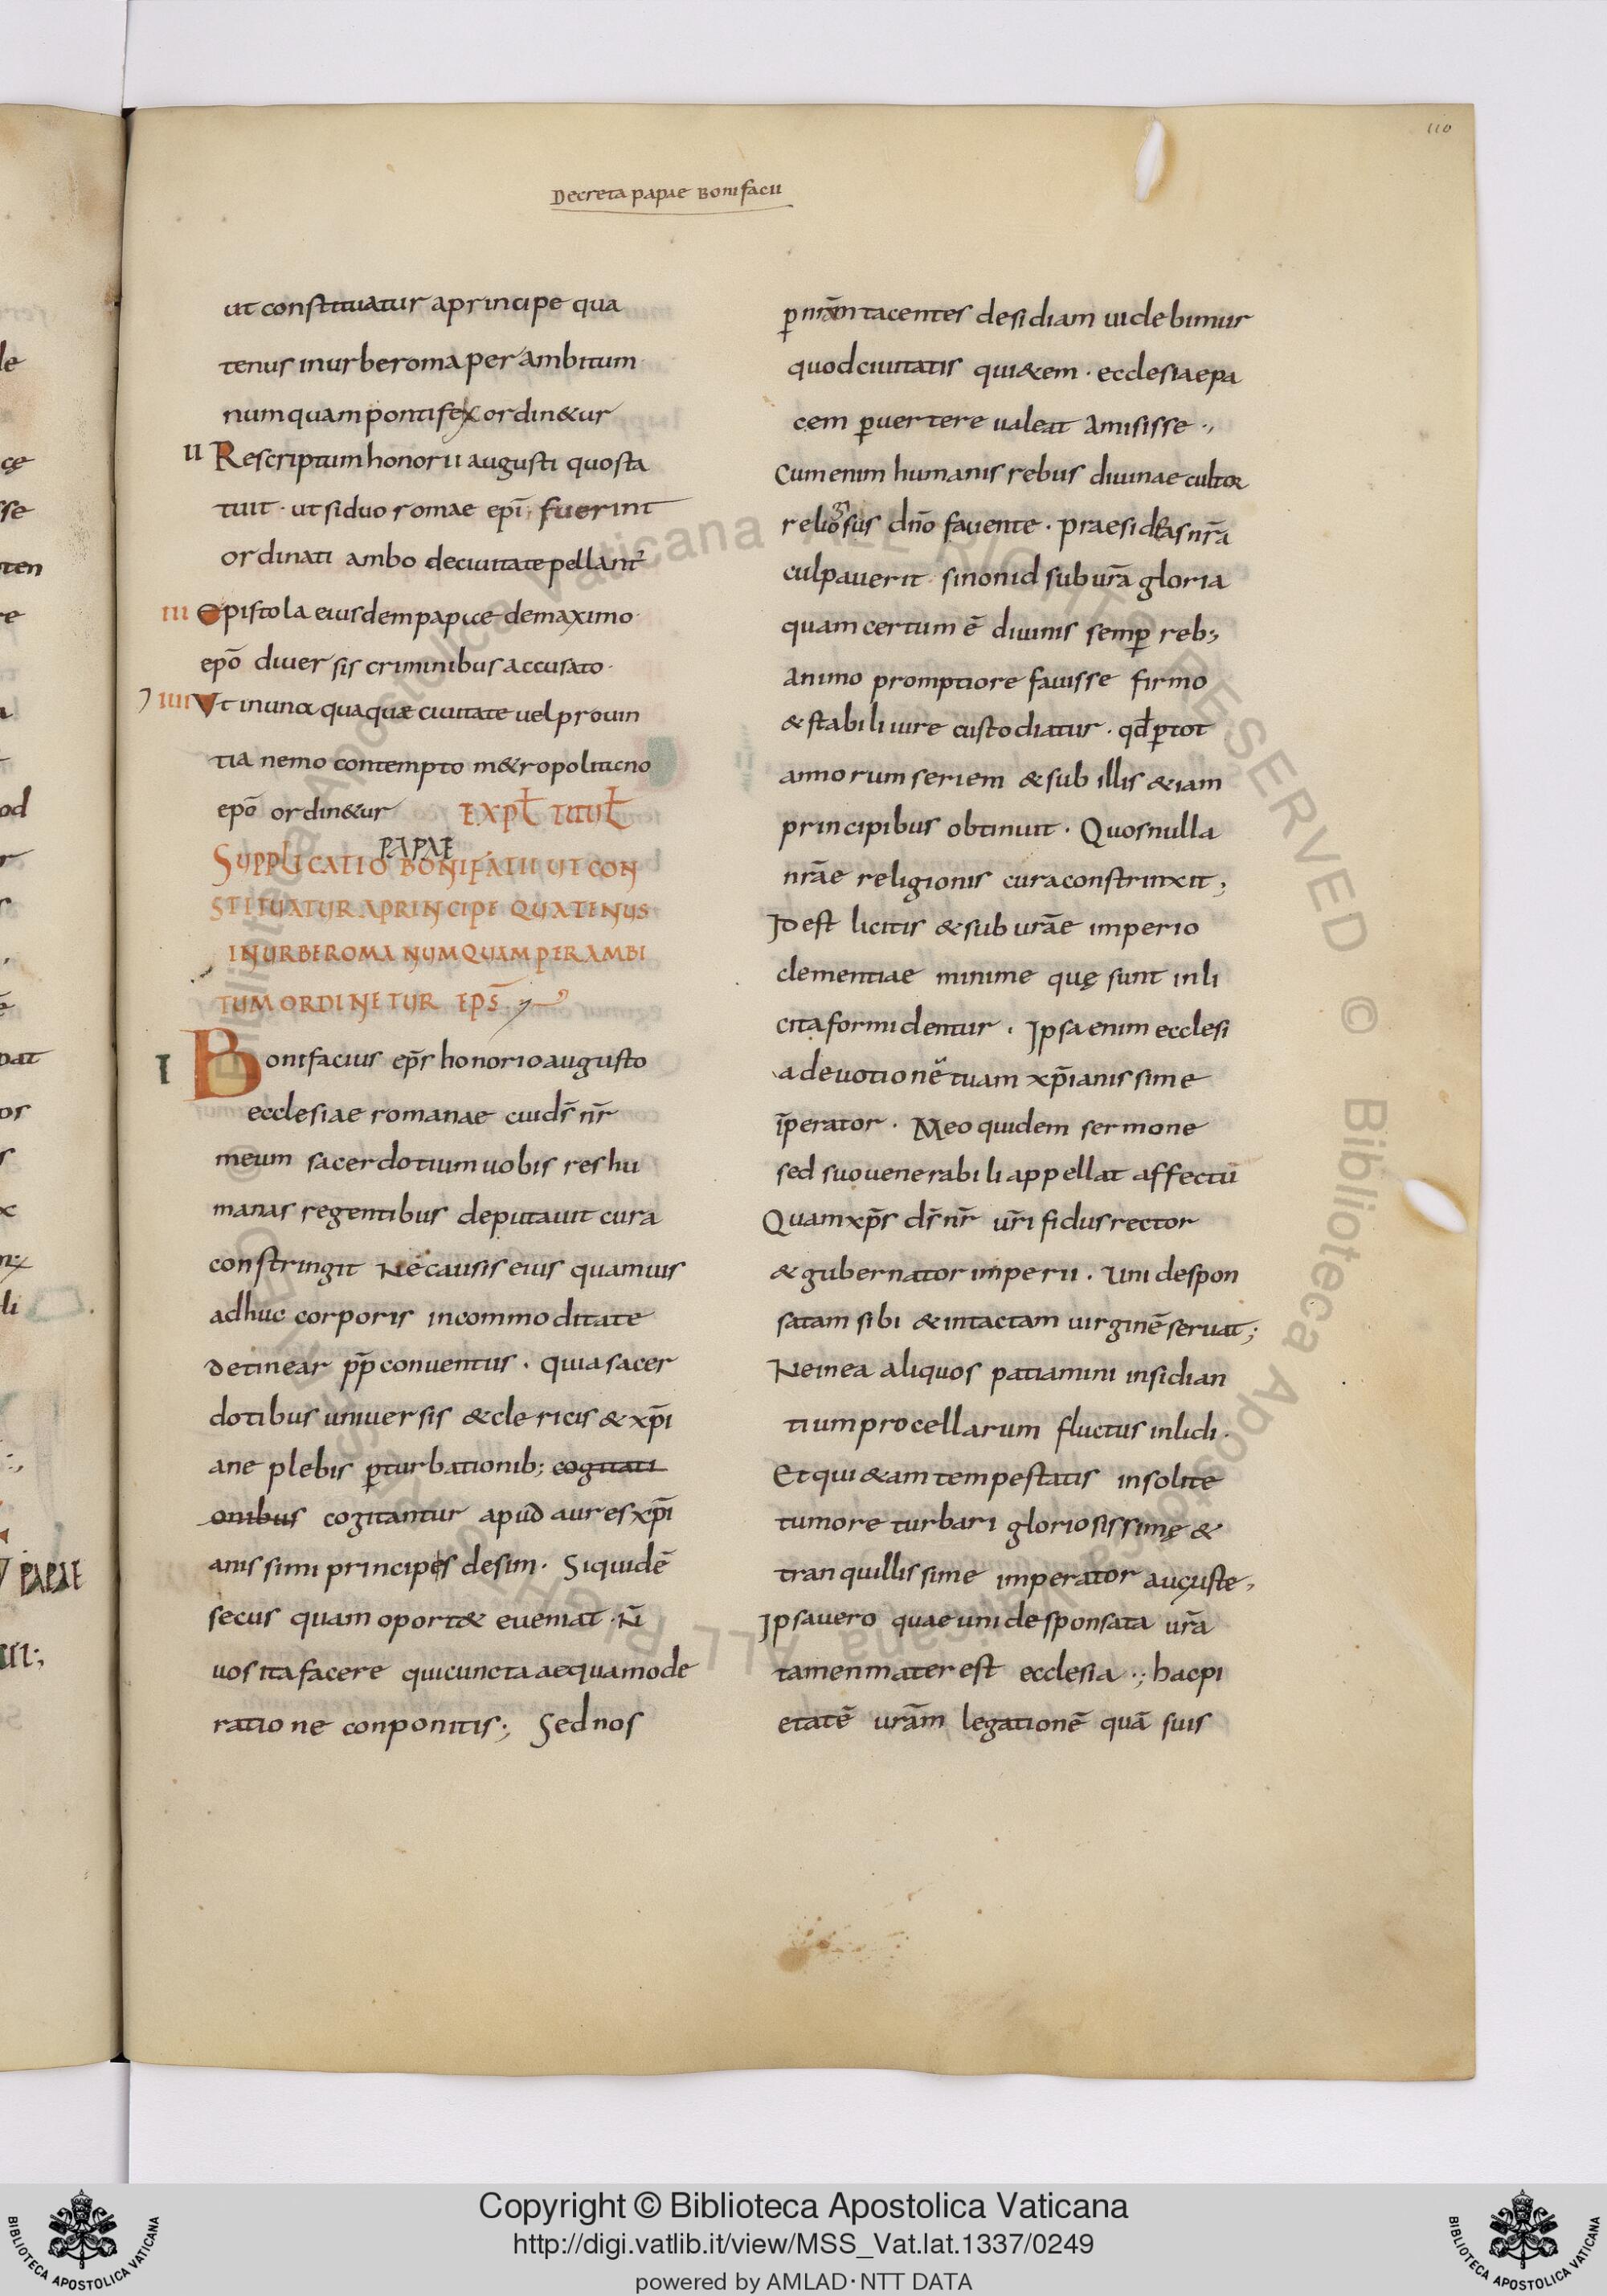 110
Decreta papae Bonifacii
ut constituatur a principe qua
tenus in urbe roma per ambitum
numquam pontifex ordin&ur
II Rescriptum honorii augusti quo sta
tuit · ut si duo romae epī fuerint
ordinati ambo de ciuitate pellant̄
III Epistola eiusdem papice de maximo
epō diuersis criminibus accusato ·
IIII Ut in una quaquæ ciuitate uel prouin
tia nemo contempto m&ropoliticno
epō ordin&ur EXPŁ TITUŁ
PAPAE
SUPPLICATIO BONIFATII UT CON
STITUATUR A PRINCIPE QUATENUS
IN URBE ROMA NUMQUAM PER AMBI
TUM ORDINETUR EPS̄
I Bonifacius ep̄s honorio augusto
ecclesiae romanae cui ds̄ nr̄
meum sacerdotium uobis res hu
manas regentibus deputauit cura
constringit Ne causis eius quamuis
adhuc corporis incommoditate
detinear p̄p conuentus · quia sacer
dotibus uniuersis & clericis & xp̄i
ane plebis p̱turbationib; cogitati
onibus cogitantur apud aures xp̄i
anissimi principes desim · Siquidē
secus quam oport& eueniat · N̄
uos ita facere qui cuncta aequa mode
ratione conponitis; Sed nos
p̱ nr̄am tacentes desidiam uidebimur
quod ciuitatis qui&em · ecclesiae pa
cem p̱uertere ualeat amisisse ·,
Cum enim humanis rebus diuinae cultor
religiosus dn̄o fauente · praesideas nr̄a
culpa uerit si non id sub ur̄a gloria
quam certum ē diuinis semp̱ reb;
animo promptiore fauisse firmo
& stabili iure custodiatur · qd̄ p̱ tot
annorum seriem & sub illis &iam
principibus obtinuit · Quos nulla
nr̄ae religionis cura constrinxit;
Id est licitis & sub ur̄ae imperio
clementiae minime quę sunt inli
cita formidentur · Ipsa enim ecclesi
a deuotionē tuam xp̄ianissime
īperator · Meo quidem sermone
sed suo uenerabili appellat affectū
Quam xp̄s ds̄ nr̄ ur̄i fidus rector
& gubernator imperii · Uni despon
satam sibi & intactam uirginē seruat;
Ne in ea aliquos patiamini insidian
tium procellarum fluctus inlidi ·
Et qui&am tempestatis insolite
tumore turbari gloriosissimę &
tranquillissime imperator auguste,
Ipsa uero quae uni desponsata ur̄a
tamen mater est ecclesia ·; hac pi
etatē ur̄am legationē quā suis
PAPAE
Copyright © Biblioteca Apostolica Vaticana
http://digi.vatlib.it/view/MSS_Vat.lat.1337/0249
powered by AMLAD·NTT DATA
BIBLIOTECA APOSTOLICA VATICANA
BIBLIOTECA APOSTOLICA VATICANA